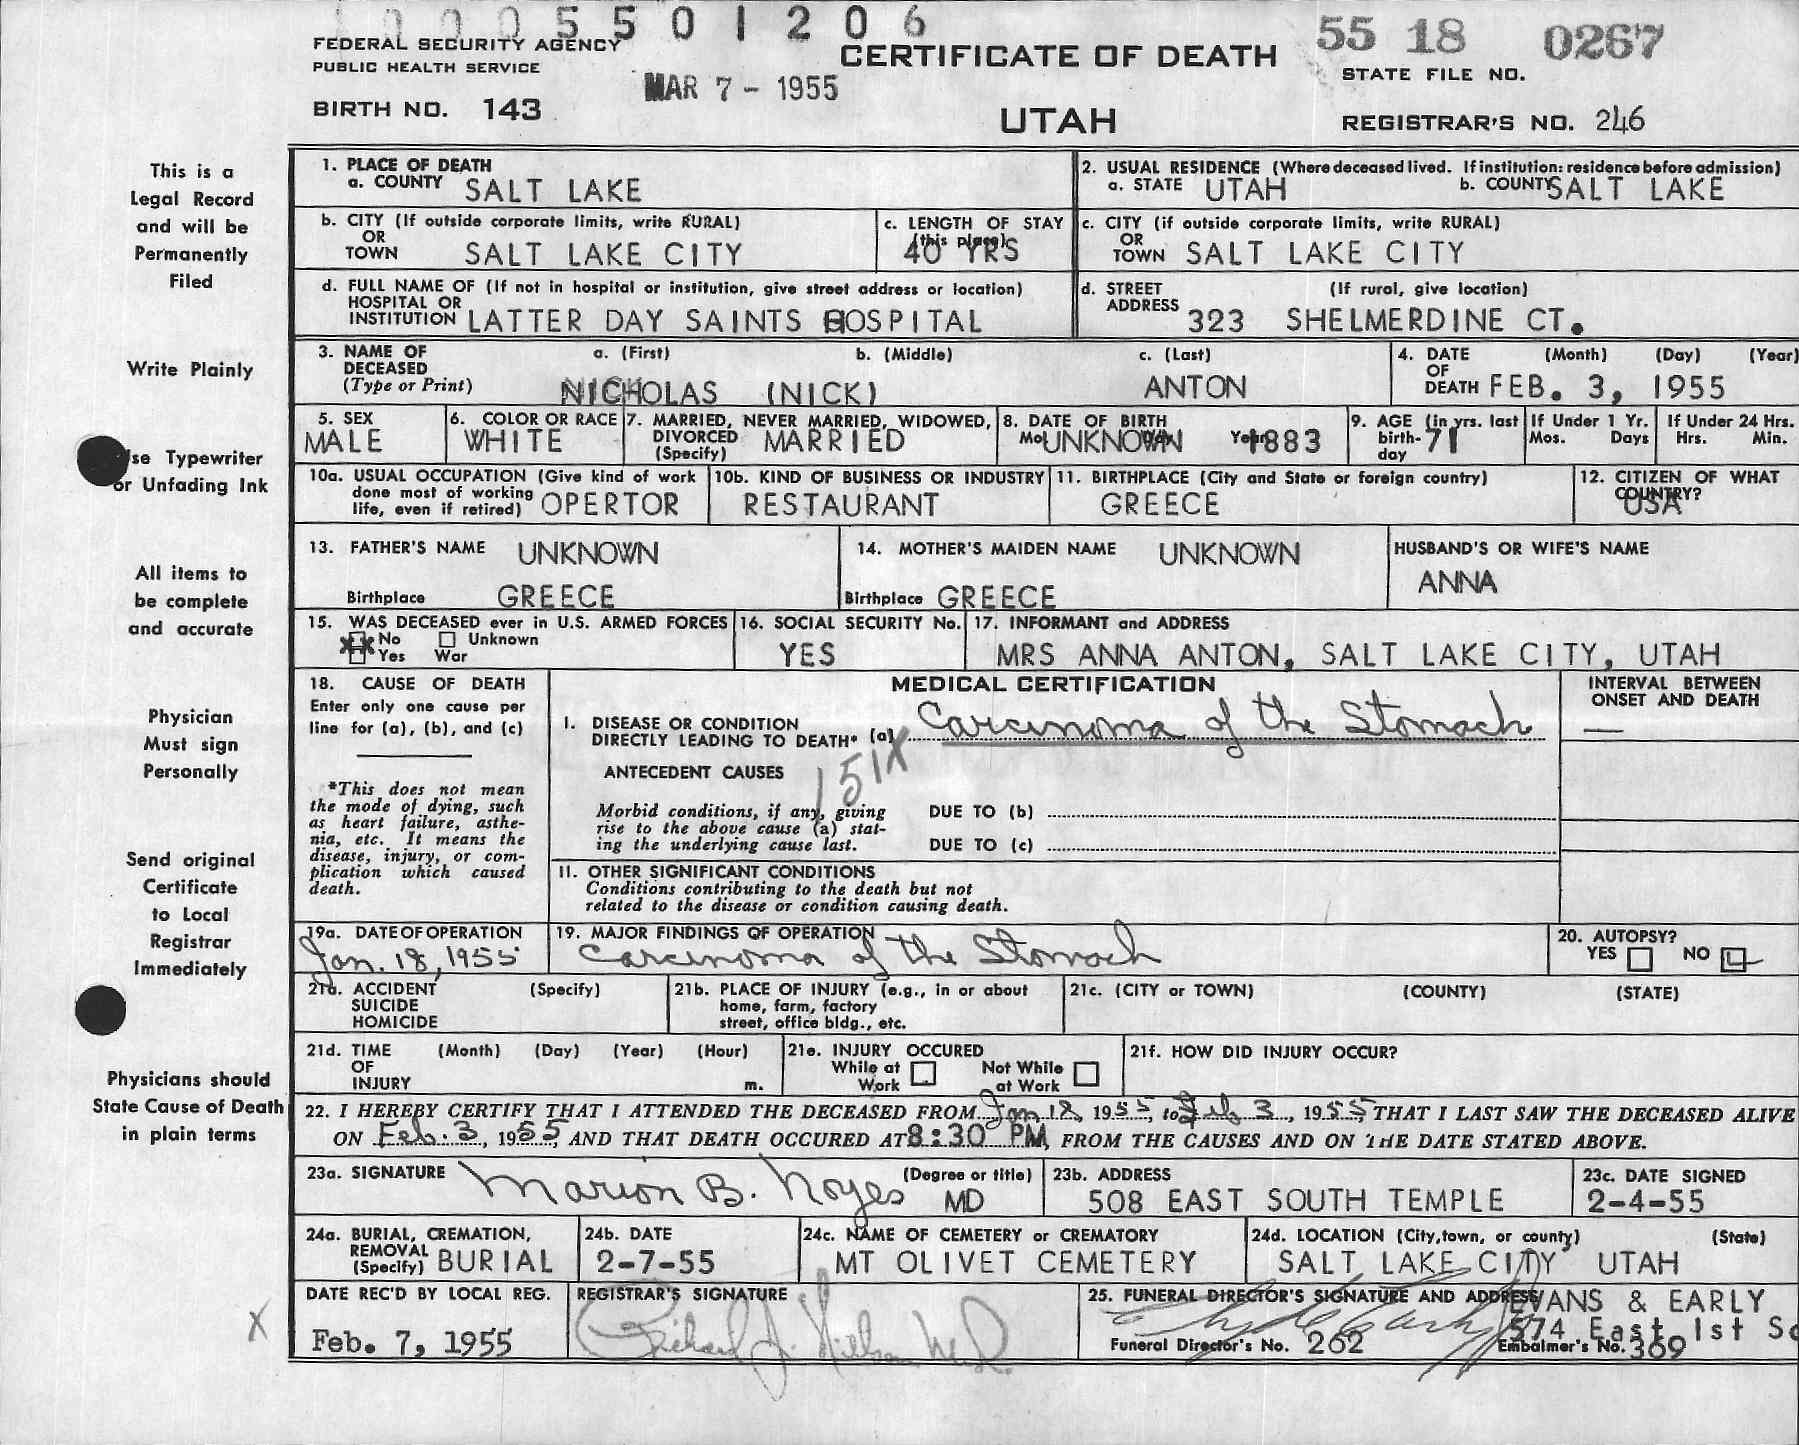 1000 5501206
FEDERAL SECURITY AGENCY
PUBLIC HEALTH SERVICE
CERTIFICATE OF DEATH
55 18 0267
STATE FILE NO.
MAR 7 - 1955
BIRTH NO. 143
UTAH
REGISTRAR'S NO. 246
This is a
Legal Record
and will be
Permanently
Filed
Write Plainly
se Typewriter
or Unfading Ink
All items to
be complete
and accurate
Physician
Must sign
Personally
Send original
Certificate
to Local
Registrar
Immediately
Physicians should
State Cause of Death
in plain terms
1. PLACE OF DEATH
a. COUNTY SALT LAKE
2. USUAL RESIDENCE (Where deceased lived. If institution: residence before admission)
a. STATE UTAH b. COUNTY SALT LAKE
b. CITY (If outside corporate limits, write RURAL)
OR
TOWN SALT LAKE CITY
c. LENGTH OF STAY
(this place)
40 YRS
c. CITY (if outside corporate limits, write RURAL)
OR
TOWN SALT LAKE CITY
d. FULL NAME OF (If not in hospital or institution, give street address or location)
HOSPITAL OR
INSTITUTION LATTER DAY SAINTS HOSPITAL
d. STREET (If rural, give location)
ADDRESS 323 SHELMERDINE CT.
3. NAME OF a. (First) b. (Middle) c. (Last)
DECEASED
(Type or Print) NICHOLAS (NICK) ANTON
4. DATE (Month) (Day) (Year)
OF
DEATH FEB. 3, 1955
5. SEX
MALE
6. COLOR OR RACE
WHITE
7. MARRIED, NEVER MARRIED, WIDOWED,
DIVORCED MARRIED
(Specify)
8. DATE OF BIRTH
Mo. UNKNOWN Day Year 1883
9. AGE (in yrs. last
birth- 71
day
If Under 1 Yr.
Mos. Days
If Under 24 Hrs.
Hrs. Min.
10a. USUAL OCCUPATION (Give kind of work
done most of working
life, even if retired) OPERTOR
10b. KIND OF BUSINESS OR INDUSTRY
RESTAURANT
11. BIRTHPLACE (City and State or foreign country)
GREECE
12. CITIZEN OF WHAT
COUNTRY?
USA
13. FATHER'S NAME UNKNOWN
Birthplace GREECE
14. MOTHER'S MAIDEN NAME UNKNOWN
Birthplace GREECE
HUSBAND'S OR WIFE'S NAME
ANNA
15. WAS DECEASED ever in U.S. ARMED FORCES
xx No Unknown
Yes War
16. SOCIAL SECURITY No.
YES
17. INFORMANT and ADDRESS
MRS ANNA ANTON, SALT LAKE CITY, UTAH
18. CAUSE OF DEATH
Enter only one cause per
line for (a), (b), and (c)
*This does not mean
the mode of dying, such
as heart failure, asthe-
nia, etc. It means the
disease, injury, or com-
plication which caused
death.
MEDICAL CERTIFICATION
INTERVAL BETWEEN
ONSET AND DEATH
I. DISEASE OR CONDITION
DIRECTLY LEADING TO DEATH* (a) Carcinoma of the Stomach —
151X
ANTECEDENT CAUSES
Morbid conditions, if any, giving
rise to the above cause (a) stat-
ing the underlying cause last.
DUE TO (b)
DUE TO (c)
II. OTHER SIGNIFICANT CONDITIONS
Conditions contributing to the death but not
related to the disease or condition causing death.
19a. DATE OF OPERATION
Jan. 18, 1955
19. MAJOR FINDINGS OF OPERATION
Carcinoma of the Stomach
20. AUTOPSY?
YES NO
21a. ACCIDENT (Specify)
SUICIDE
HOMICIDE
21b. PLACE OF INJURY (e.g., in or about
home, farm, factory
street, office bldg., etc.
21c. (CITY or TOWN) (COUNTY) (STATE)
21d. TIME (Month) (Day) (Year) (Hour)
OF
INJURY m.
21e. INJURY OCCURED
While at Not While
Work at Work
21f. HOW DID INJURY OCCUR?
22. I HEREBY CERTIFY THAT I ATTENDED THE DECEASED FROM Jan 18, 1955, to Feb 3, 1955, THAT I LAST SAW THE DECEASED ALIVE
ON Feb. 3, 1955, AND THAT DEATH OCCURED AT 8:30 PM, FROM THE CAUSES AND ON THE DATE STATED ABOVE.
23a. SIGNATURE Marion B. Noyes (Degree or title) MD
23b. ADDRESS
508 EAST SOUTH TEMPLE
23c. DATE SIGNED
2-4-55
24a. BURIAL, CREMATION,
REMOVAL
(Specify) BURIAL
24b. DATE
2-7-55
24c. NAME OF CEMETERY or CREMATORY
MT OLIVET CEMETERY
24d. LOCATION (City, town, or county) (State)
SALT LAKE CITY UTAH
X
DATE REC'D BY LOCAL REG.
Feb. 7, 1955
REGISTRAR'S SIGNATURE
Richard J. Nielsen M.D.
25. FUNERAL DIRECTOR'S SIGNATURE AND ADDRESS EVANS & EARLY
574 East 1st So
Funeral Director's No. 262 Embalmer's No. 369